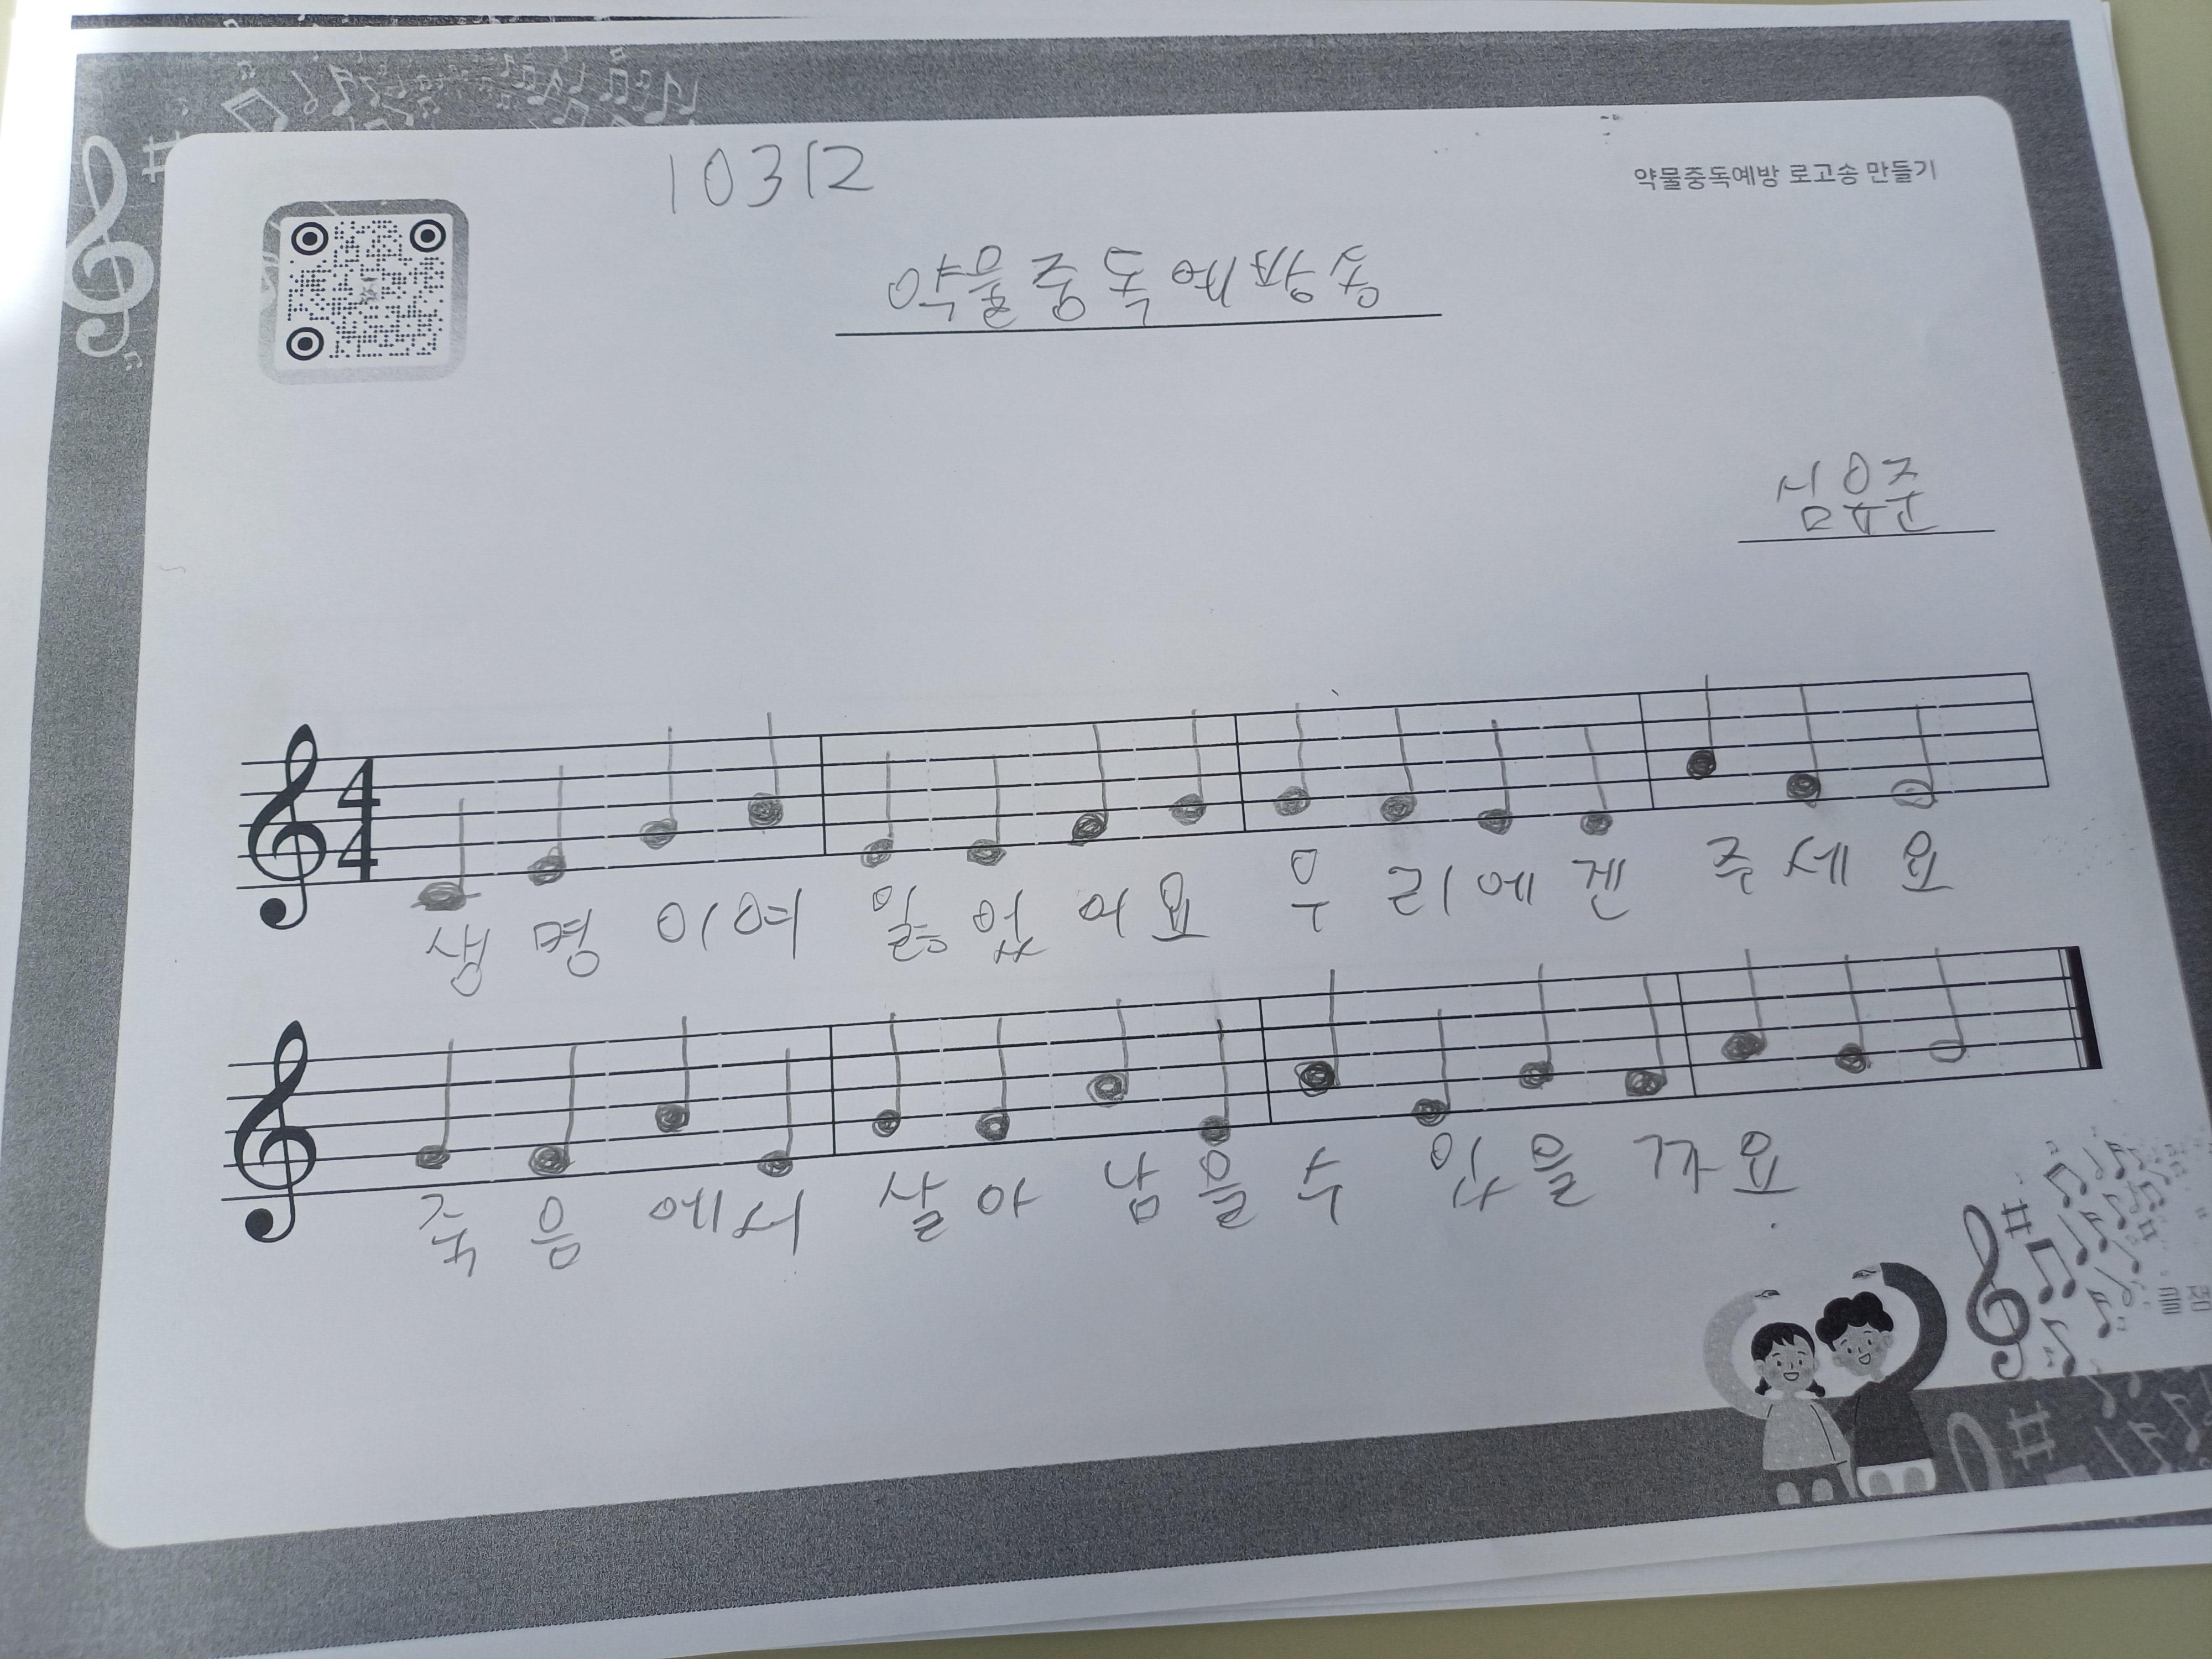 10312
약물중독예방 로고송 만들기
약물중독예방송
심유준
생명이여 잃었어요 우리에겐 주세요
죽음에서 살아남을수 있을까요
클잼